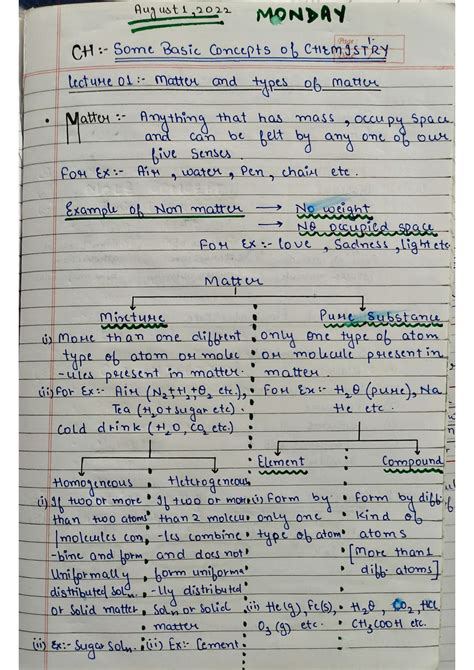 August 1, 2022 MONDAY
Page:
CH:- Some Basic Concepts of CHEMISTRY
Lecture 01:- Matter and types of matter
• Matter:- Anything that has mass, occupy space
and can be felt by any one of our
five senses.
For Ex:- Air, water, Pen, chair etc.
Example of Non matter → No weight
→ No occupied space
For Ex:- love, Sadness, light etc
Matter
Mixture
(i) More than one different
type of atom or molec
-ules present in matter.
(ii) For Ex:- Air (N2+H2+O2 etc.),
Tea (H2O+sugar etc).
Cold drink (H2O, CO2 etc)
Pure Substance
• only one type of atom
or molecule present in
matter.
For Ex:- H2O (pure), Na
He etc.
Homogeneous
(i) If two or more
than two atoms
/molecules com
-bine and form
Uniformally
distributed soln.
or solid matter
(ii) Ex:- Sugar Soln.
Heterogeneous
• If two or more
than 2 molecu
-les combine
and does not
form uniforma
-lly distributed
soln or solid
(ii) Ex:- Cement
Element
(i) Form by
only one
type of atom
(ii) He(g), Fe(s),
O3(g) etc.
Compound
• Form by diff.
kind of
atoms
[More than 1
diff. atoms]
• H2O, CO2, HCl
CH3COOH etc.